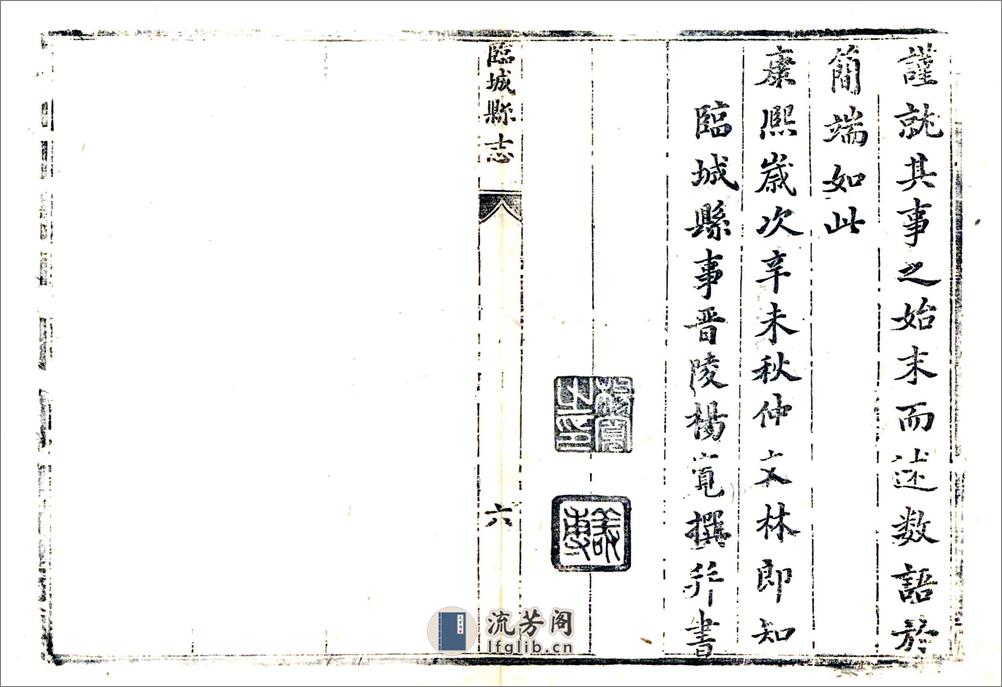 謹就其事之始末而述数語於
簡端如此
康熙歲次辛未秋仲文林郎知
臨城縣事晋陵楊寬撰并書
楊寬之印
臨城縣志
六
流芳阁
lfglib.cn